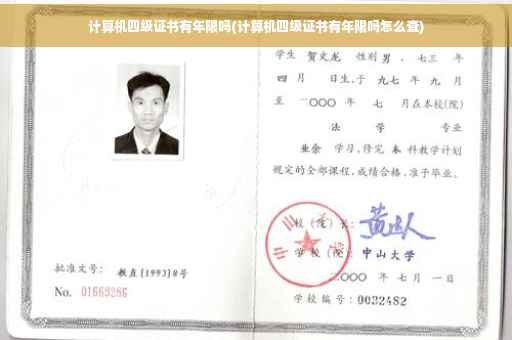 计算机四级证书有年限吗(计算机四级证书有年限吗怎么查)
学生 贺文龙 性别 男 . 七三 年
四 月 日生,于 九七 年 九 月
至 二〇〇〇 年 七 月在本校(院)
法 学 专业
业余 学习,修完 本 科教学计划
规定的全部课程,成绩合格,准予毕业。
校(院)长:
学校(院): 中山大学
二〇〇〇 年 七 月 一 日
学校编号: 0032482
批准文号: 教直[1993]8号
No. 01669286